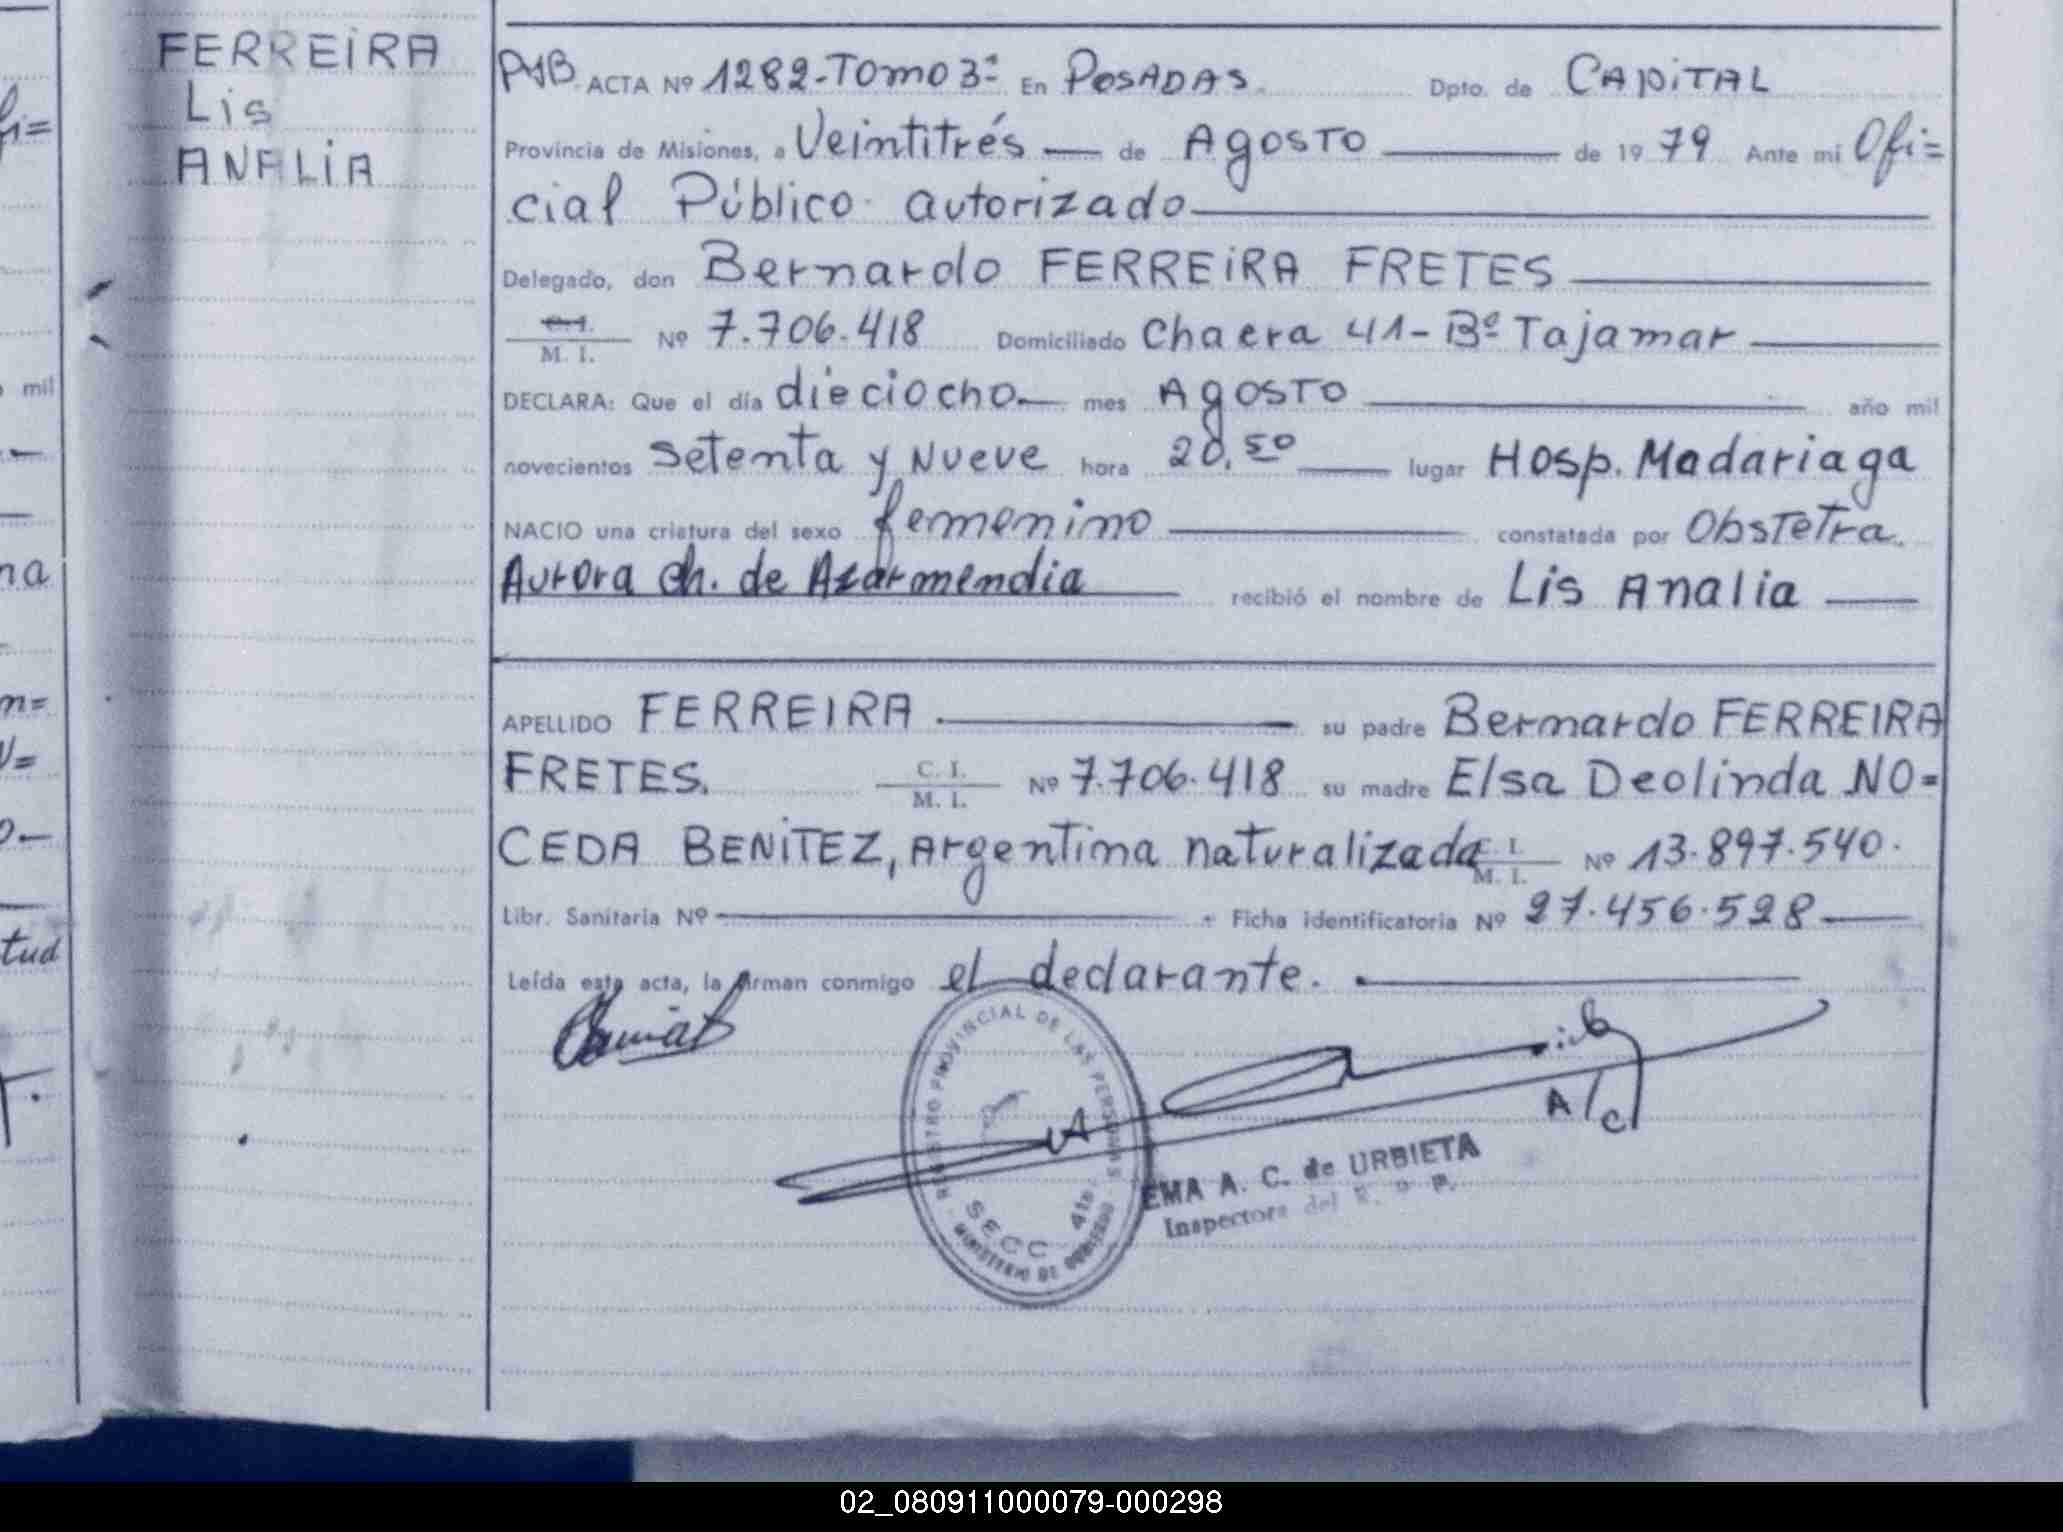 FERREIRA
Lis
ANALIA
ACTA Nº 1282-Tomo 3º En POSADAS Dpto. de CAPITAL
Provincia de Misiones, a Veintitrés de Agosto de 1979 Ante mi Ofi=
cial Público autorizado
Delegado, don Bernardo FERREIRA FRETES
C.I. M. I. Nº 7.706.418 Domiciliado Chacra 41-Bº Tajamar
DECLARA: Que el día dieciocho mes Agosto año mil
novecientos setenta y Nueve hora 20,50 lugar Hosp. Madariaga
NACIO una criatura del sexo femenino constatada por Obstetra
Aurora Ch. de Azarmendia recibió el nombre de Lis Analia
APELLIDO FERREIRA su padre Bernardo FERREIRA
FRETES. C. I. M. I. Nº 7.706.418 su madre Elsa Deolinda NO=
CEDA BENITEZ, Argentina naturalizada C. I. M. I. Nº 13.897.540.
Libr. Sanitaria Nº Ficha identificatoria Nº 27.456.528
Leída esta acta, la firman conmigo el declarante.
REGISTRO PROVINCIAL DE LAS PERSONAS
MINISTERIO DE GOBIERNO
SECC
A/C
EMA A. C. de URBIETA
Inspectora del
mil
na
tud
02_080911000079-000298